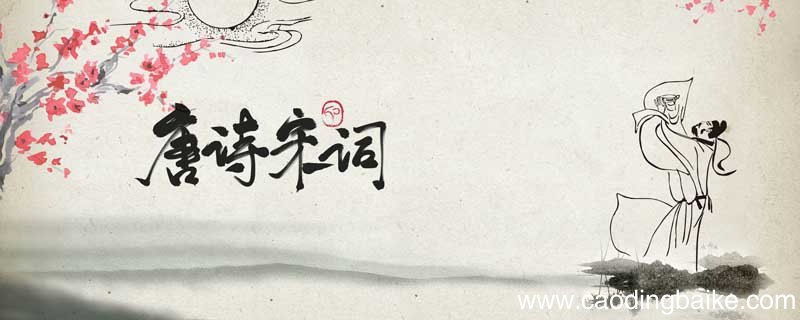 唐诗宋词
www.caodingbaike.com